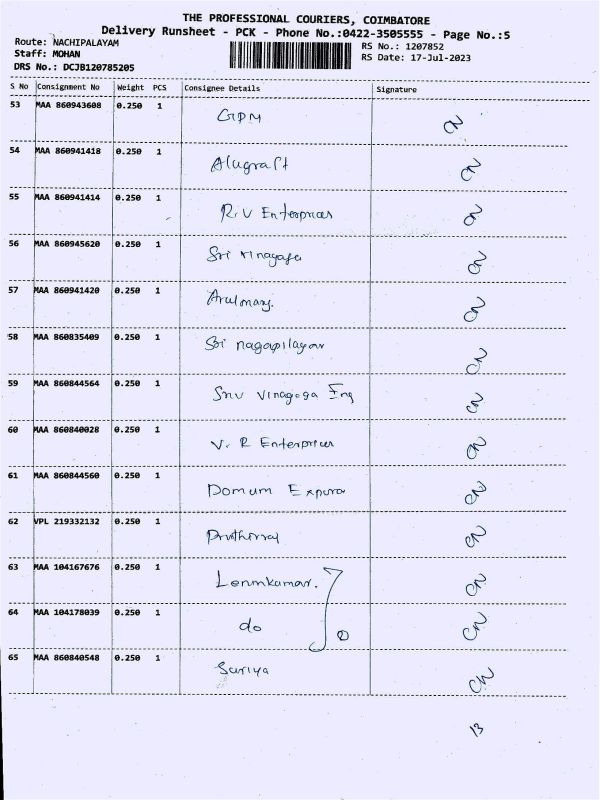 THE PROFESSIONAL COURIERS, COIMBATORE
Delivery Runsheet - PCK - Phone No.:0422-3505555 - Page No.:5
Route: NACHIPALAYAM
Staff: MOHAN
DRS No.: DCJB120785205
RS No.: 1207852
RS Date: 17-Jul-2023
S No Consignment No Weight PCS Consignee Details Signature
53 MAA 860943608 0.250 1 GPM CN
54 MAA 860941418 0.250 1 Alugraft CN
55 MAA 860941414 0.250 1 R.V Enterprices CN
56 MAA 860945620 0.250 1 Sri CN
57 MAA 860941420 0.250 1 CN
58 MAA 860835409 0.250 1 Sri CN
59 MAA 860844564 0.250 1 Vinagaga Eng CN
60 MAA 860840028 0.250 1 V. R Enterprices CN
61 MAA 860844560 0.250 1 Domum CN
62 VPL 219332132 0.250 1 CN
63 MAA 104167676 0.250 1 CN
64 MAA 104178039 0.250 1 do CN
65 MAA 860840548 0.250 1 Suriya CN
13